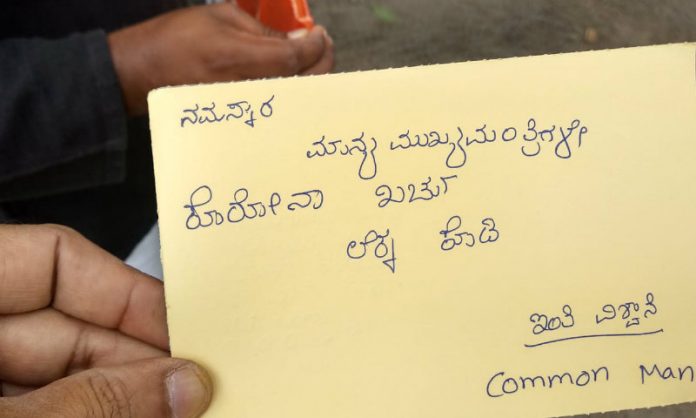 ನಮಸ್ಕಾರ
ಮಾನ್ಯ ಮುಖ್ಯಮಂತ್ರಿಗಳೇ
ಕೊರೋನಾ ಖರ್ಚು
ಲೆಕ್ಕ ಕೊಡಿ
ಇಂತಿ ವಿಶ್ವಾಸಿ
Common Man